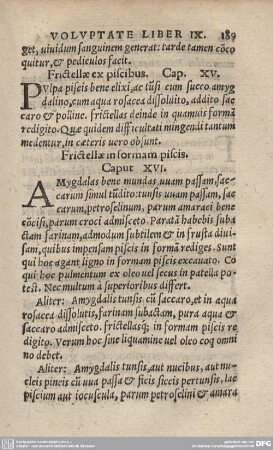 VOLVPTATE LIBER IX. 189
get, uiuidum sanguinem generat: tarde tamen cōco
quitur, & pediculos facit.
Frictellæ ex piscibus. Cap. XV.
PVlpa piscis bene elixi, ac tūsi cum succo amyg
dalino, cum aqua rosacea dissoluito, addito sac
caro & polline. frictellas deinde in quamuis formā
redigito. Quæ quidem difficultati mingendi tantum
medentur, in cæteris uero obsunt.
Frictellæ in formam piscis.
Caput XVI.
AMygdalas bene mundas uuam passam, sac=
carum simul tūdito: tunsis uuam passam, sac
carum, petroselinum, parum amaraci bene
cōcisi, parum croci admisceto. Paratā habebis suba
ctam farinam, admodum subtilem & in frusta diui=
sam, quibus impensam piscis in formā rediges. Sunt
qui hoc agant ligno in formam piscis excauato. Co
qui hoc pulmentum ex oleo uel secus in patella po=
test. Nec multum à superioribus differt.
Aliter: Amygdalis tunsis, cū saccaro, et in aqua
rosacea dissolutis, farinam subactam, pura aqua &
saccaro admisceto. frictellasq; in formam piscis re
digito. Verum hoc sine liquamine uel oleo coq omni
no debet.
Aliter: Amygdalis tunsis, aut nucibus, aut nu=
cleis pineis cū uua passa & ficis siccis pertunsis, lac
piscium aut iocuscula, parum petroselini & amara